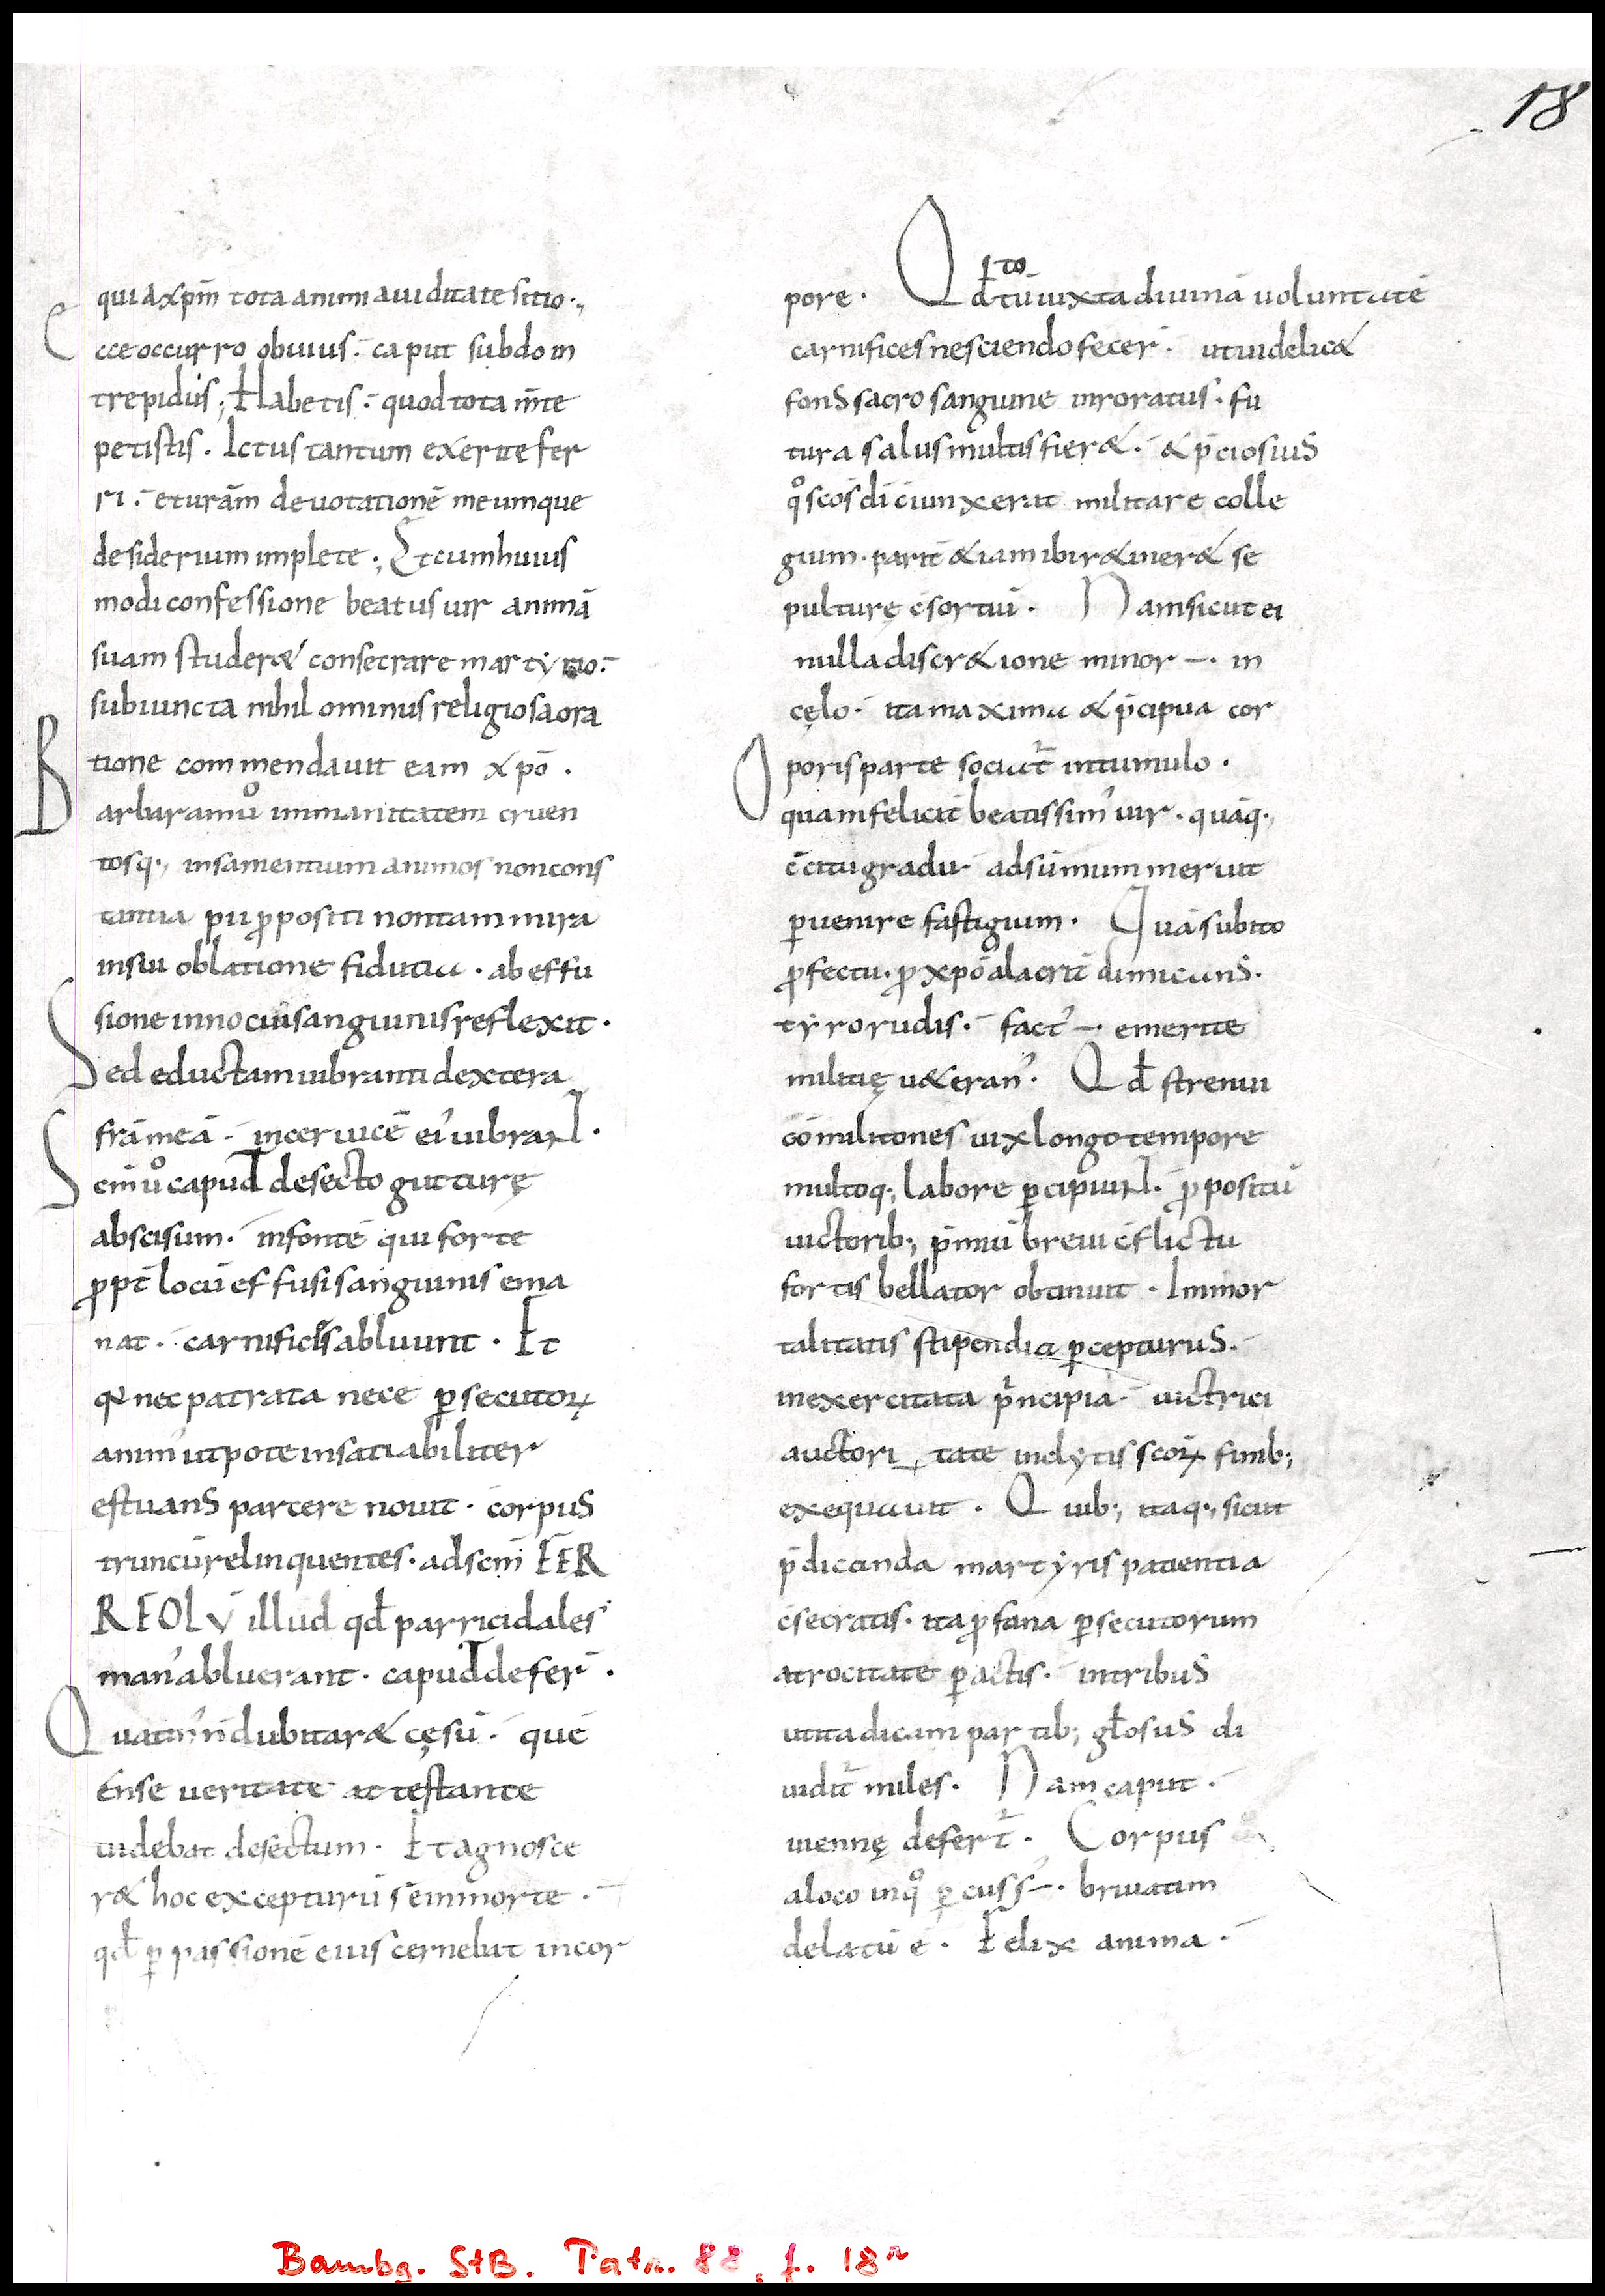 18
quia xpm̄ tota animi auiditate sitio.
Ecce occurro obuius. caput subdo in
trepidus; Habetis. quod tota m̄te
petistis. Ictus tantum exerite fer
ri. et urām deuotationē meumque
desiderium implete. Et cum huius
modi confessione beatus uir animā
suam studer& consecrare martyrio.
subiuncta nihilominus religiosa ora
tione commendauit eam xpō.
Barbaram ů immanitatem cruen
tosq; insanientium animos non cons
tantia pii ꝓpositi non tam mira
in sui oblatione fidutia. ab effu
sione innocui sanguinis reflexit.
Sed eductam uibranti dextera
frāmeā. in ceruicē ei' uibrar̄.
Scm̄ ů capud desecto gutturę
abscisum. in fontē qui forte
ꝓpt̄ locū effusi sanguinis ema
nat. carnifices abluunt. Et
q̄ nec patrata nece ꝑsecutoꝝ
anim' utpote insatiabiliter
estuans parcere nouit. corpus
truncū relinquentes. ad scm̄ FER
REOLV̄ illud qđ parricidales
man' abluerant. capud defer̄.
Quatin' n̄ dubitar& cęsū. quē
ense ueritate attestante
uidebat desectum. Et agnosce
r& hoc excepturū se in morte.
qđ ꝑ passionē eius cernebat in cor
pore. Qđ tū iuxta diuinā voluntatē
ꝑto
carnifices nesciendo fecer̄. ut uidelic&
fons sacro sanguine inroratus. fu
tura salus multis fier&. & p̄ciosius
q̊ scōs dī ciunxerat militare colle
gium. parit̄ &iam ibi r&iner& se
pulturę c̄sortiū. Nam sicut ei
nulla discr&ione minor ÷. in
cęlo. ita maxima & p̄cipua cor
poris parte sociat̄ in tumulo.
O quam felicit̄ beatissim' uir. quāq;
c̄citu gradu. ad sūmum meruit
ꝑuenire fastigium. Quā subito
ꝓfectu. ꝓ xpō alacrit̄ dimicans.
tyro rudis. fact' ÷. emerite
militię u&eran'. Qđ strenui
cōmilitones uix longo tempore
multoq; labore ꝑcipiunt. ꝓpositū
uictorib; p̄miū breui c̄flictu
fortis bellator obtinuit. Inmor
talitatis stipendia ꝑcepturus.
inexercitata p̄ncipia. uictrici
auctoritate inclytis scōꝝ finib;
exequauit. Quib; itaq; sicut
p̄dicanda martyris patientia
c̄secratis. ita ꝓfana ꝑsecutorum
atrocitate ꝑactis. in tribus
ut ita dicam partib; gl̄osus di
uidit̄ miles. Nam caput.
uiennę defert̄. Corpus
a loco in q̊ ꝑcuss' ÷. briuatim
delatū ē. Felix anima.
Bambg. StB. Patr. 88, f. 18r